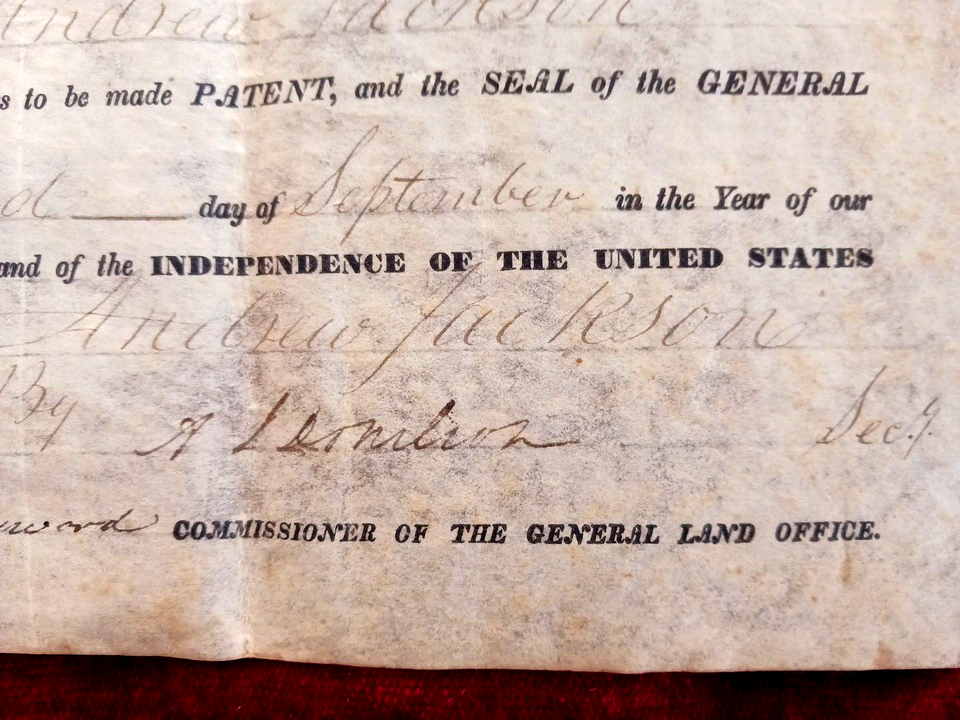 Andrew Jackson
s to be made PATENT, and the SEAL of the GENERAL
d day of September in the Year of our
and of the INDEPENDENCE OF THE UNITED STATES
Andrew Jackson
By A J Donelson Sec.y.
COMMISSIONER OF THE GENERAL LAND OFFICE.